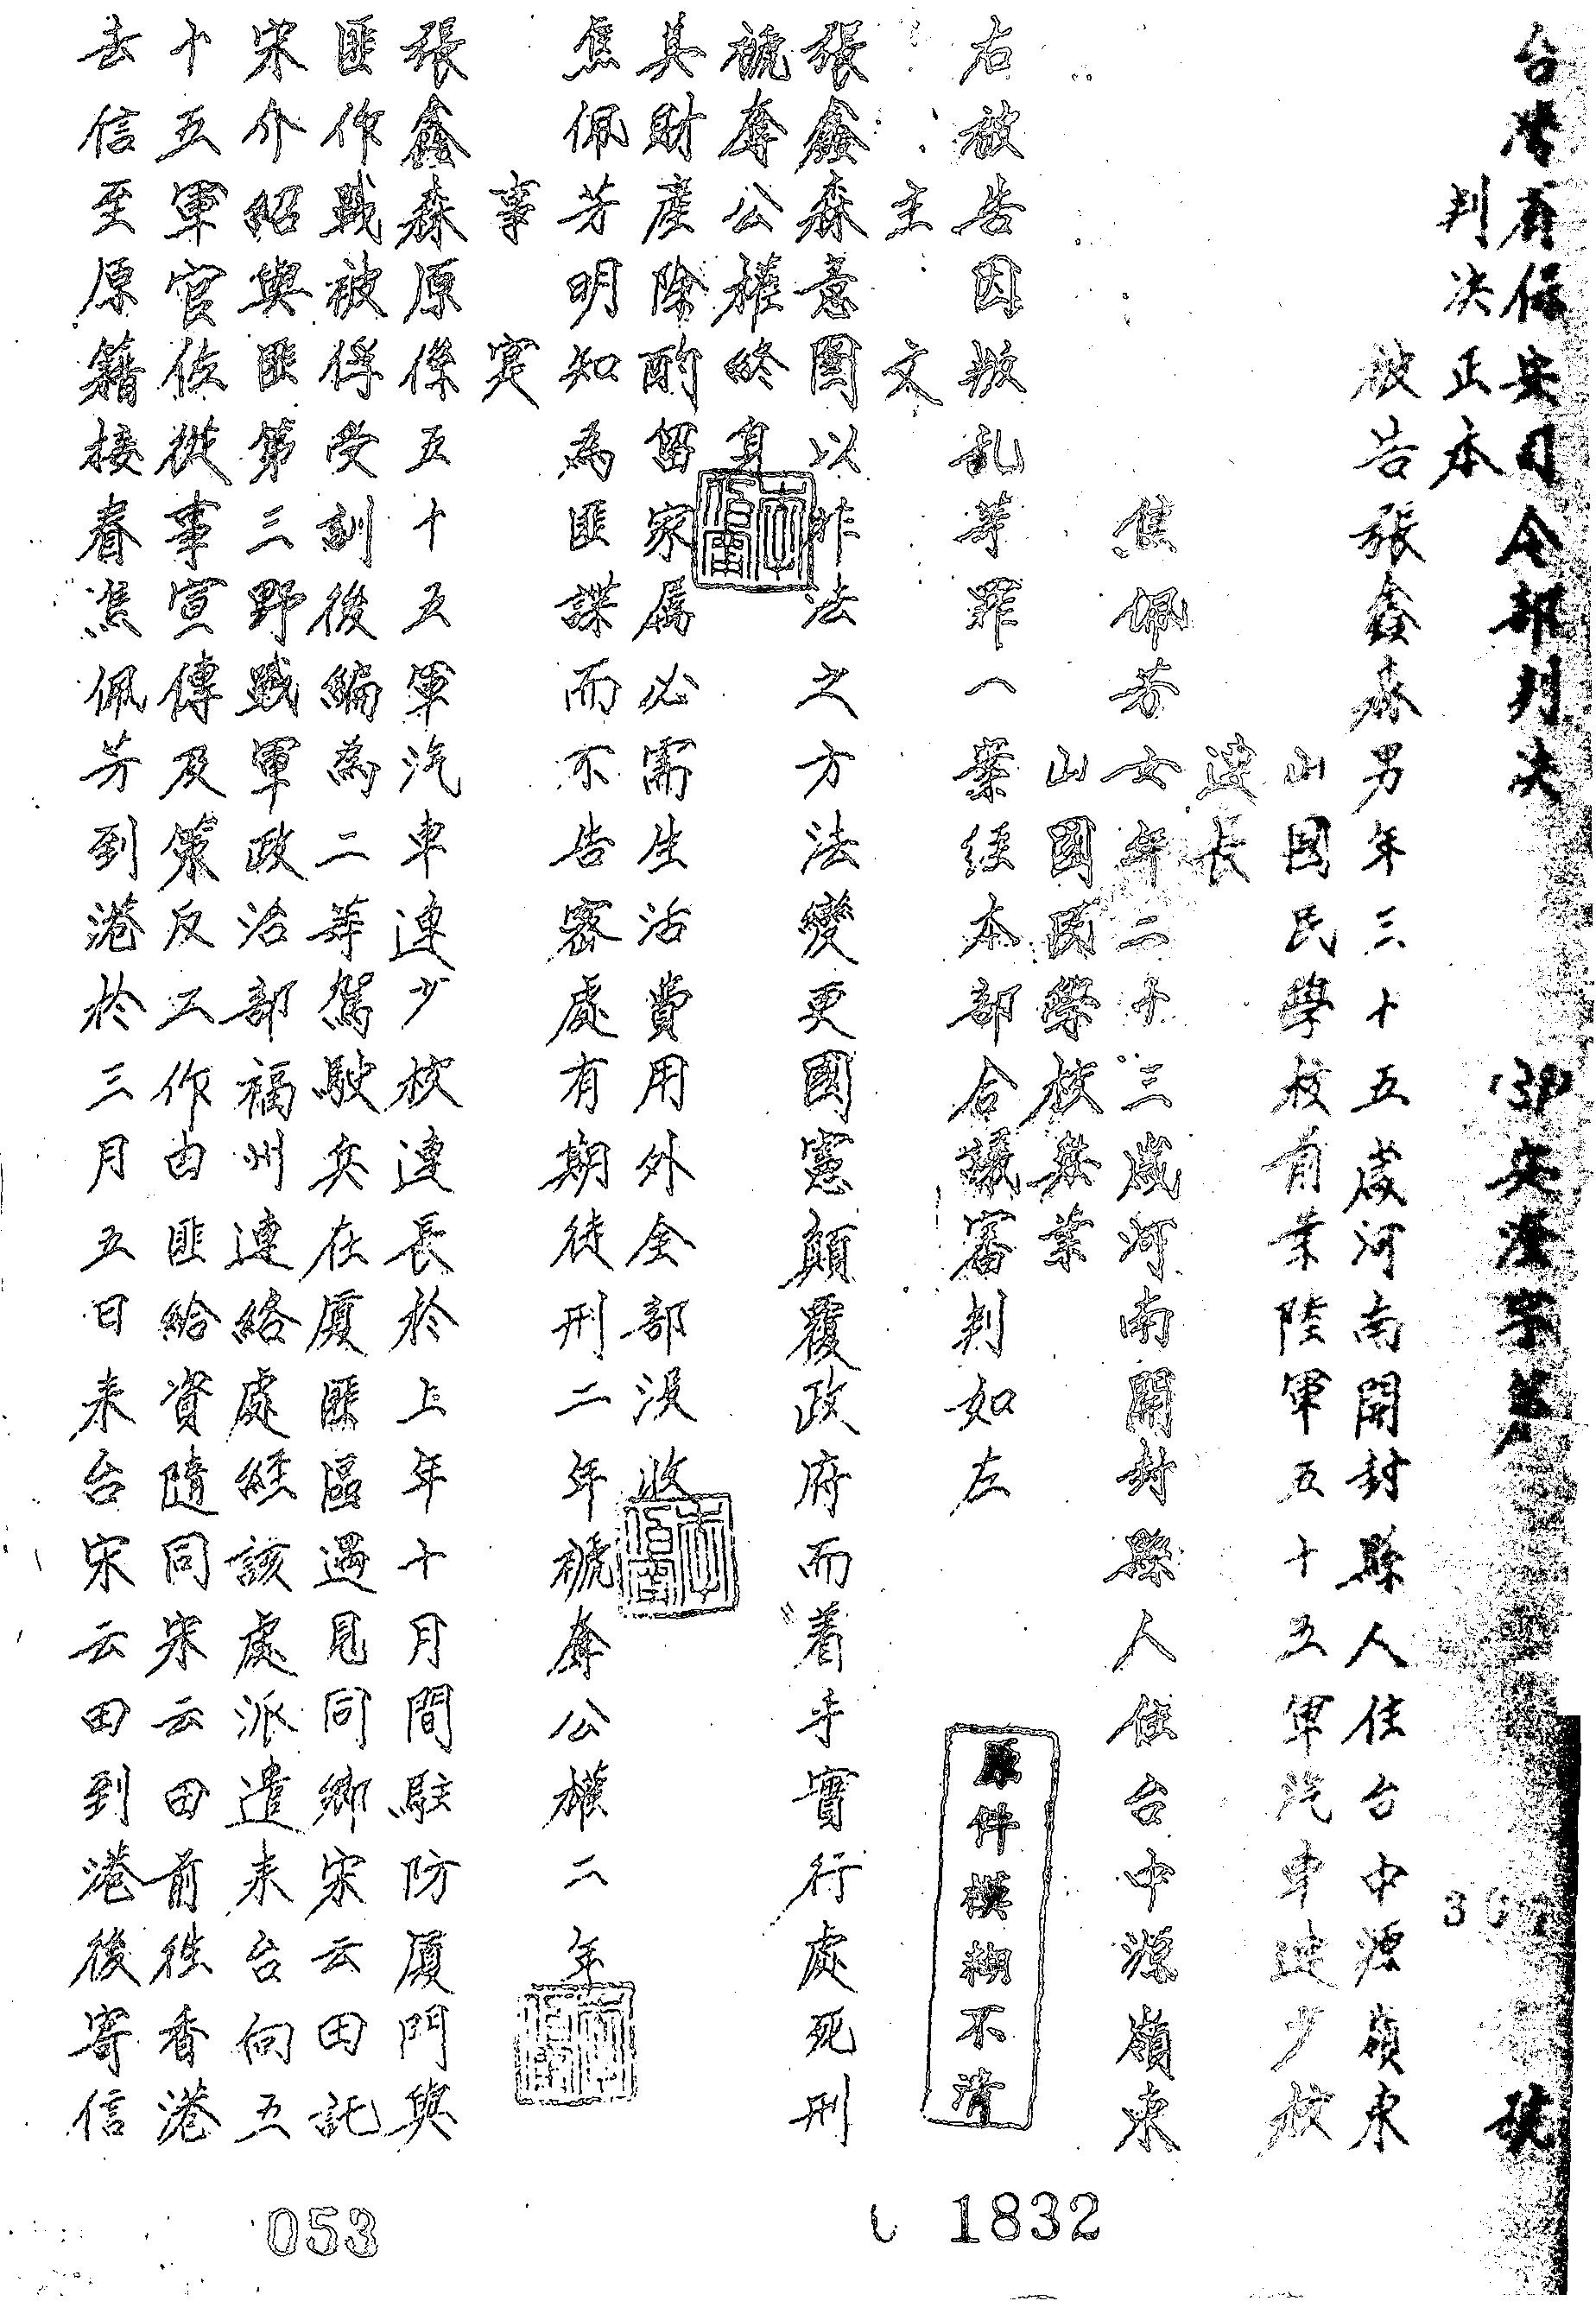 台灣省保安司令部判決 安潔字第 號
判決正本
被告張鑫森男年三十五歲河南開封縣人住台中源嶺東
山國民學校前業陸軍五十五軍汽車連少校
連長
焦佩芳女年二十三歲河南開封縣人住台中源嶺東
山國民學校無業
右被告因叛乱等罪一案經本部合議審判如左
主文
張鑫森意圖以非法之方法變更國憲顛覆政府而着手實行處死刑
褫奪公權終身
其財產除酌留家屬必需生活費用外全部沒收
焦佩芳明知為匪諜而不告密處有期徒刑二年褫奪公權二年
事實
張鑫森原係五十五軍汽車連少校連長於上年十月間駐防厦門與
匪作戰被俘受訓後編為二等駕駛兵在厦匪區遇見同鄉宋云田託
宋介紹與匪第三野戰軍政治部福州連絡處經該處派遣來台向五
十五軍官佐從事宣傳及策反工作由匪給資隨同宋云田前往香港
去信至原籍接眷焦佩芳到港於三月五日來台宋云田到港後寄信
原件模糊不清
1832
053